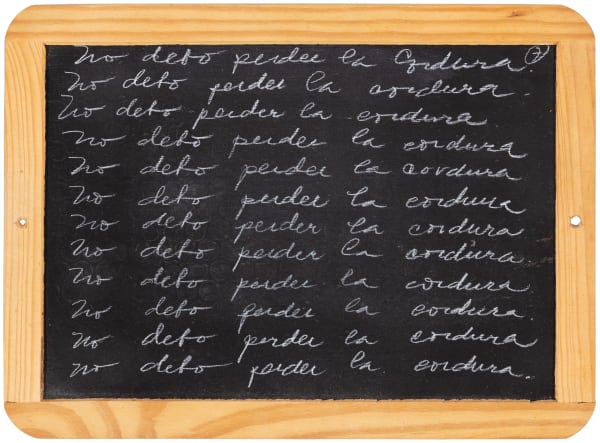 no debo perder la Cordura. 7
no debo perder la cordura.
no debo perder la cordura
no debo perder la cordura
no debo perder la cordura
no debo perder la cordura
no debo perder la cordura.
no debo perder la cordura.
no debo perder la cordura
no debo perder la cordura.
no debo perder la cordura
no debo perder la cordura.